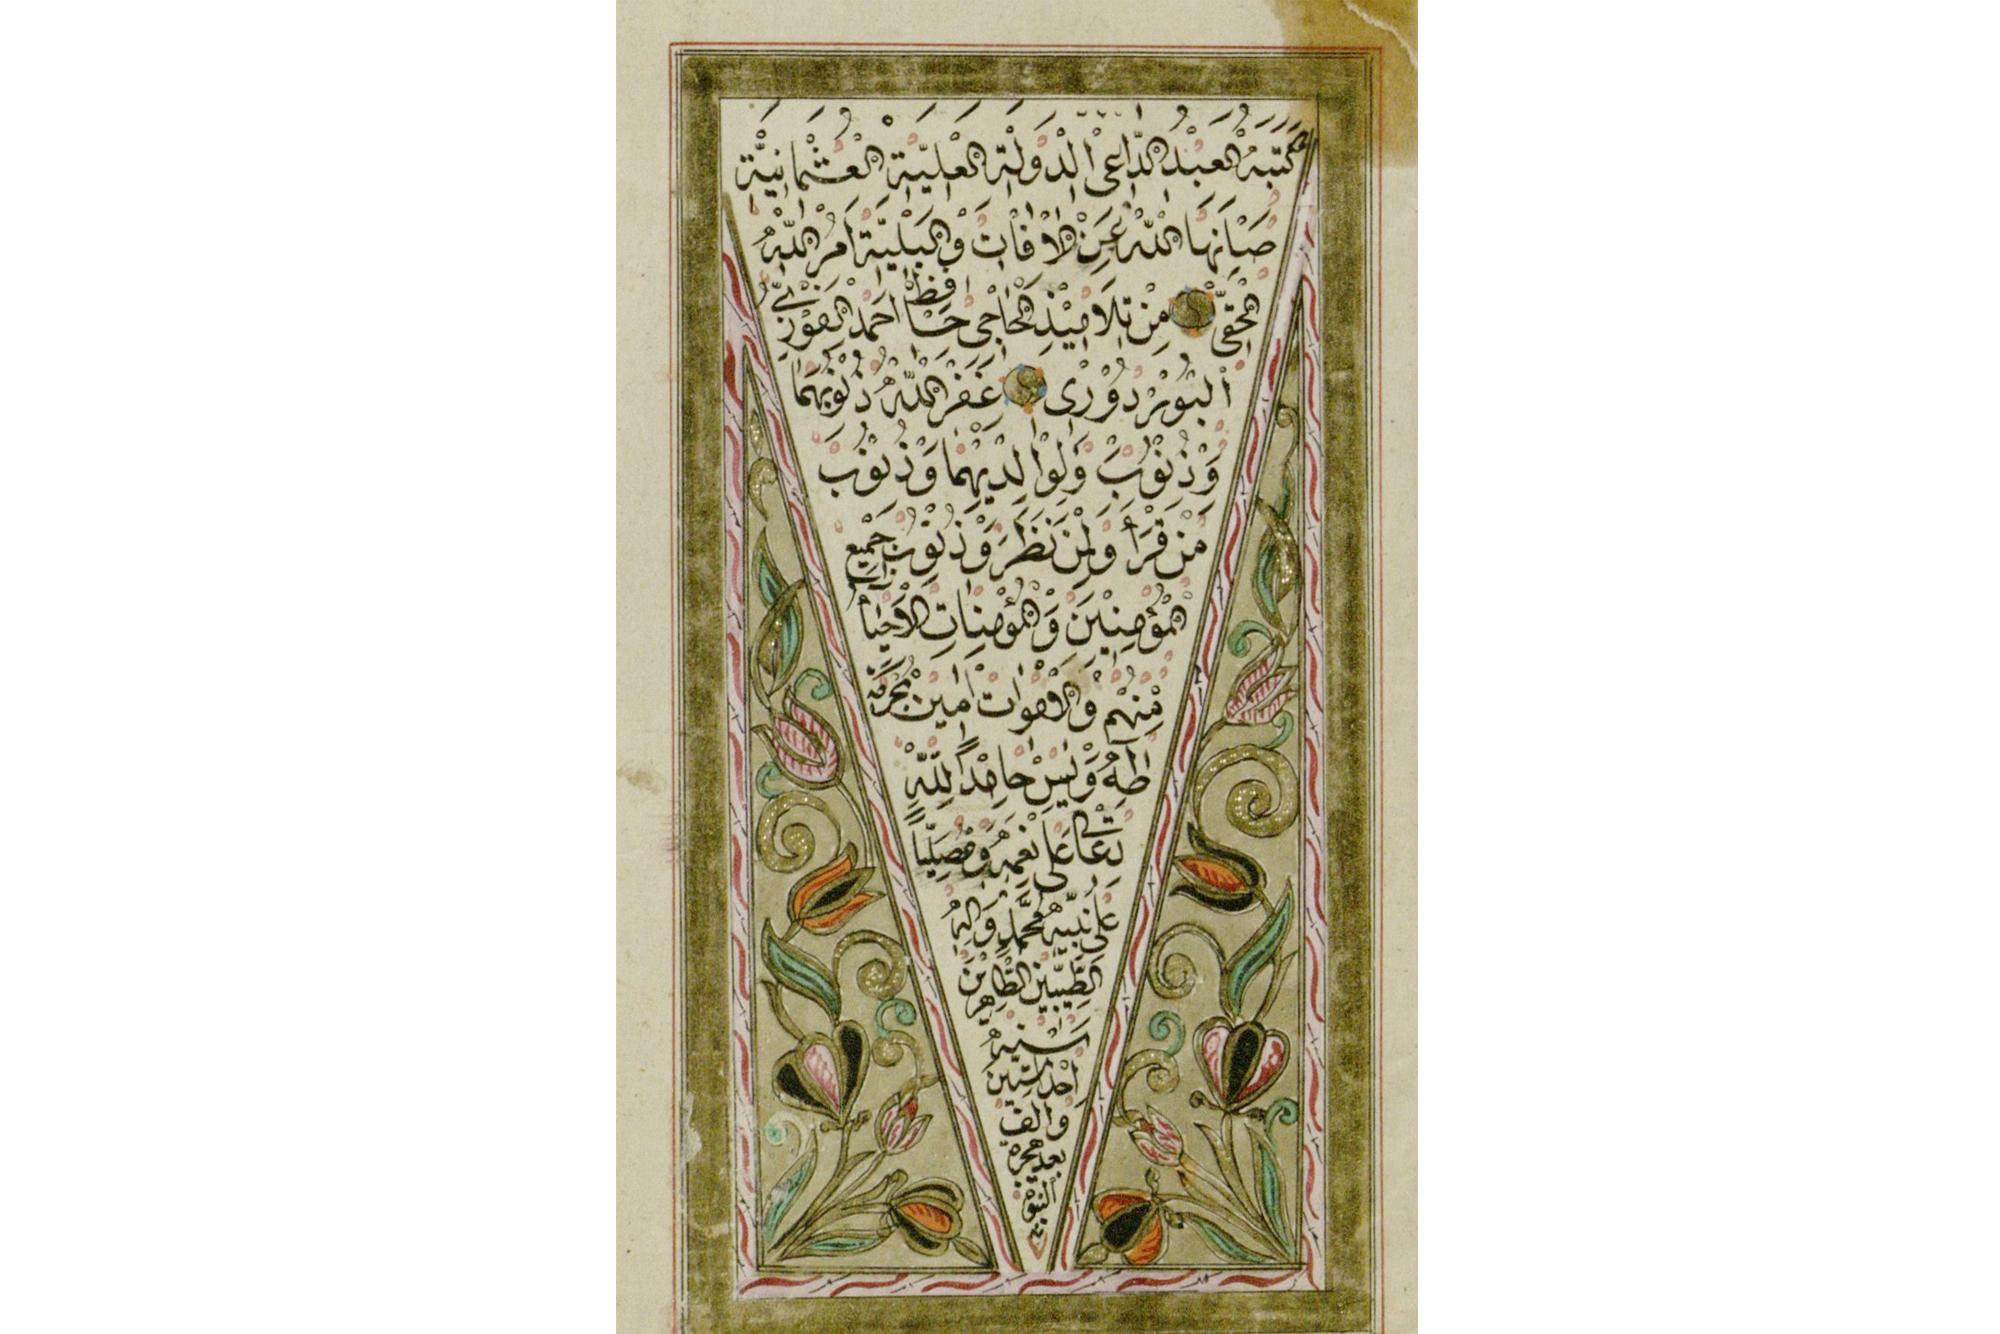 كَتَبَهُ الْعَبْدُ الدَّاعِى الْدَوْلَةِ الْعَلِيَّةِ الْعُثْمَانِيَّةِ
صَيَانَهَا اللّٰهُ عَنِ الْاٰفَاتِ وَالْبَلِيَّةِ اَمْرُ اللّٰهُ
الْحَقِّىّ مِنْ تَلَامِيْذِ الْحَاجِى حَافِظْ اَحْمَدْ الْفَوْزِىِّ
غَفَرَ اللّٰهُ ذُنُوْبَهُمَا
وَذُنُوْبَ وَلِوَالِدِيْهِمَا وَذُنُوْبَ
مَنْ قَرَأَ وَلِمَنْ نَظَرَ وَذُنُوْبَ جَمِيْعِ
الْمُؤْمِنِيْنَ وَالْمُؤْمِنَاتِ الْاَحْيَاۤءِ
مِنْهُمْ وَالْاَمْوَاتِ اٰمِيْنْ بِحُرْمَةِ
طٰهٰ وَيٰسۤ حَامِدًا لِلّٰهِ
تَعَالٰى عَلٰى نِعَمِهِ وَمُصَلِّيًا
عَلٰى نَبِيِّهِ مُحَمَّدٍ وَاٰلِهِ
الطَّيِّبِيْنَ الطَّاهِرِيْنَ
سَنَه
اَحَدْ
وَالَفْ
بَعْدَ هِجْرَةِ
النَّبَوِيَّةِ